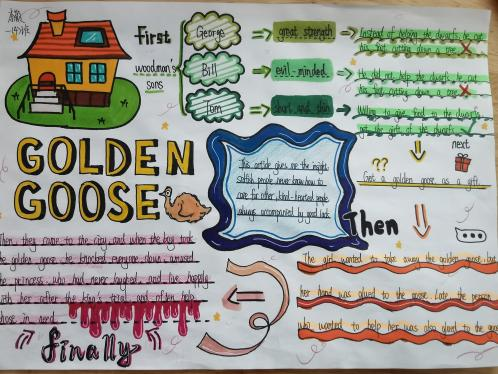 First
woodman's
sons
George
great strength
Instead of helping the dwarfs, he cut
his foot cutting down a tree
Bill
evil-minded
He did not help the dwarfs, he cut
his foot cutting down a tree
Tom
short and thin
Willing to give food to the dwarfs
get the gift of the dwarf
next
??
Get a golden goose as a gift
GOLDEN
GOOSE
This article gives me the insight
selfish people never know how to
care for other, kind-hearted people
always accompanied by good luck
Then
The girl wanted to take away the golden goose, but
her hand was glued to the goose. Later the person
who wanted to help her was also glued to the goose
Then, they came to the city, and when the boy took
the golden goose, he knocked everyone down, amused
the princess, who had never laughed, and live happily
with her after the king's trial and often help
those in need
finally